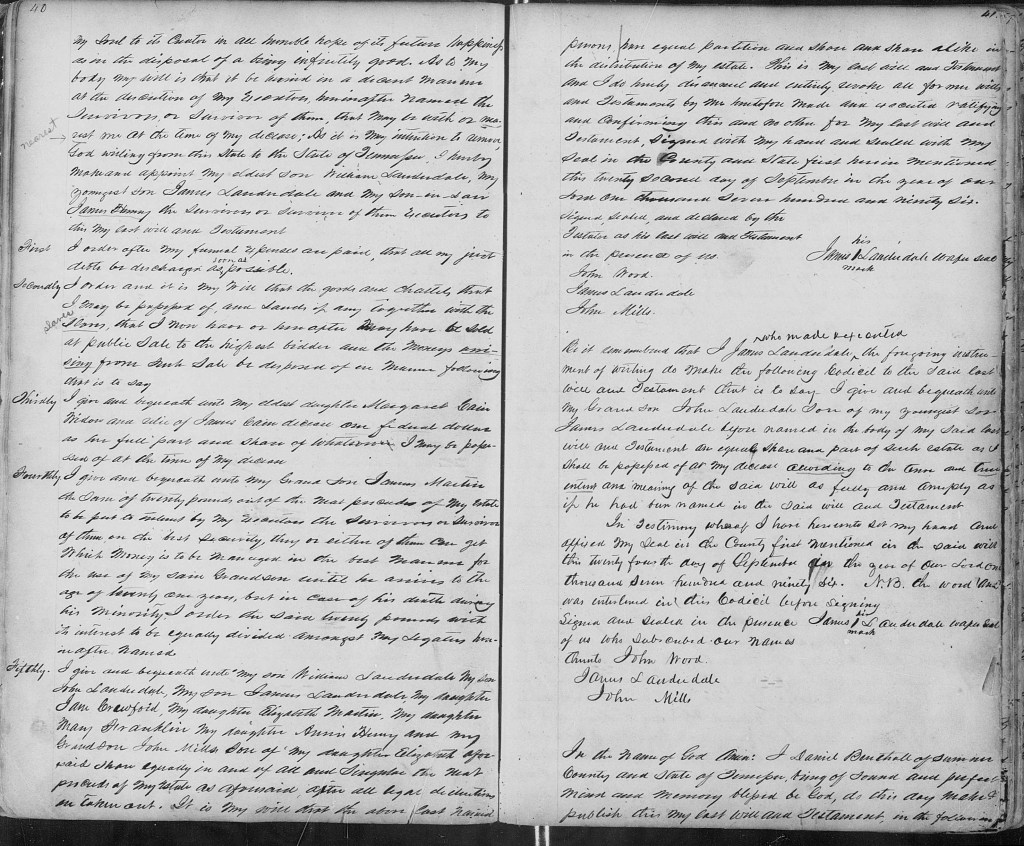 40
my Soul to its Creator in all humble hope of its future happiness
as in the disposal of a being infinitely good. As to my
body my will is that it be buried in a decent manner
at the discretion of my Executors, hereinafter named the
Survivors, or Survivor of them, that may be with or nea-
nearest
rest me at the time of my decease; As it is my intention to remove
God willing from this State to the State of Tennessee, I hereby
make and appoint my eldest son William Lauderdale, my
youngest son James Lauderdale and my son in law
James Henry the survivors or survivor of them Executors to
this my last will and Testament
First I order after my funeral expenses are paid, that all my just
debts be discharged as soon as possible.
Secondly I order and it is my Will that the goods and chattels that
I may be possessed of, and Lands if any together with the
slaves
Slaves, that I now have or hereafter may have be sold
at public Sale to the highest bidder and the moneys ari-
sing from such sale be disposed of in manner following
that is to say
Thirdly I give and bequeath unto my eldest daughter Margaret Cain
Widow and relic of James Cain decease one federal dollar
as her full part and share of whatever I may be posse-
ssed of at the time of my decease
Fourthly I give and bequeath unto my Grand Son James Martin
the sum of twenty pounds out of the neat proceedes of my Estate
to be put to interest by my executors the survivors or survivor
of them on the best security they or either of them can get
Which money is to be managed in the best manner for
the use of my said Grandson until he arrives to the
age of twenty one years, but in case of his death during
his minority, I order the said twenty pounds with
its interest to be equally divided amongst my Legatees here-
in after named
Fifthly. I give and bequeath unto my son William Lauderdale my son
John Lauderdale, my son James Lauderdale my daughter
Jane Crawford, my daughter Elizabeth Martin, my daughter
Mary Franklin my daughter Annis Henry and my
Grandson John Mills son of my daughter Elizabeth afore
said share equally in and of all and singular the neat
proceeds of my Estate as aforesaid, after all legal deductions
are taken out. It is my will that the above last named
41
persons, have equal partition and share and share alike in
the distribution of my estate. This is my last will and Testament
and I do hereby disannul and entirely revoke all former wills
and Testaments by me heretofore made and executed ratifying
and confirming this and no other for my last will and
Testament, Signed with my hand and sealed with my
Seal in the County and State first herein mentioned
this twenty second day of September in the year of our
Lord one thousand seven hundred and ninety six.
Signed sealed, and declared by the
Testator as his last will and Testament
in the presence of us. James his mark Lauderdale wafer seal
John Wood.
James Lauderdale
John Mills.
who made & executed
Be it remembered that I James Lauderdale, the foregoing instru-
ment of writing do make the following Codicil to the said last
will and Testament that is to say I give and bequeath unto
my Grand son John Lauderdale son of my youngest son
James Lauderdale before named in the body of my said last
will and Testament an equal share and part of such estate as I
shall be possessed of at my decease according to the tenor and true
intent and meaning of the said will as fully and amply as
if he had been named in the said will and Testament
In Testimony whereof I have hereunto set my hand and
affixed my Seal in the County first mentioned in the said will
this twenty fourth day of September in the year of our Lord one
thousand seven hundred and ninety six. N.B. the word
was interlined in this Codicil before signing
Signed and Sealed in the presence James his mark Lauderdale wafer seal
of us who subscribed our names
thereto John Wood.
James Lauderdale
John Mills
In the Name of God Amen: I Daniel Benthall of Sumner
County and State of Tennessee, being of sound and perfect
mind and memory blessed be God, do this day make &
publish this my last will and Testament, in the following